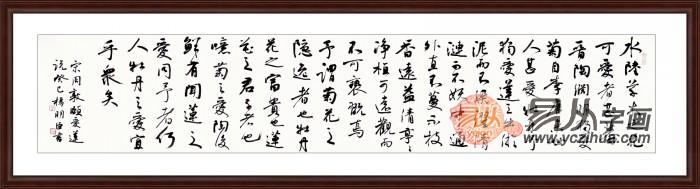 水陸草木之花
可愛者甚蕃
晋陶渊明愛
菊自李唐来世
人甚愛牡丹予
獨愛蓮之出淤
泥而不染濯清
漣而不妖中通
外直不蔓不枝
香遠益清亭亭
净植可遠觀而
不可褻玩焉
予謂菊花之
隐逸者也牡丹
花之富貴也蓮
花之君子者也
噫菊之愛陶後
鮮有聞蓮之
愛同予者何
人牡丹之愛宜
乎衆矣
宋周敦頤愛蓮
説癸巳楊明臣書
易从字画
www.yczihua.com